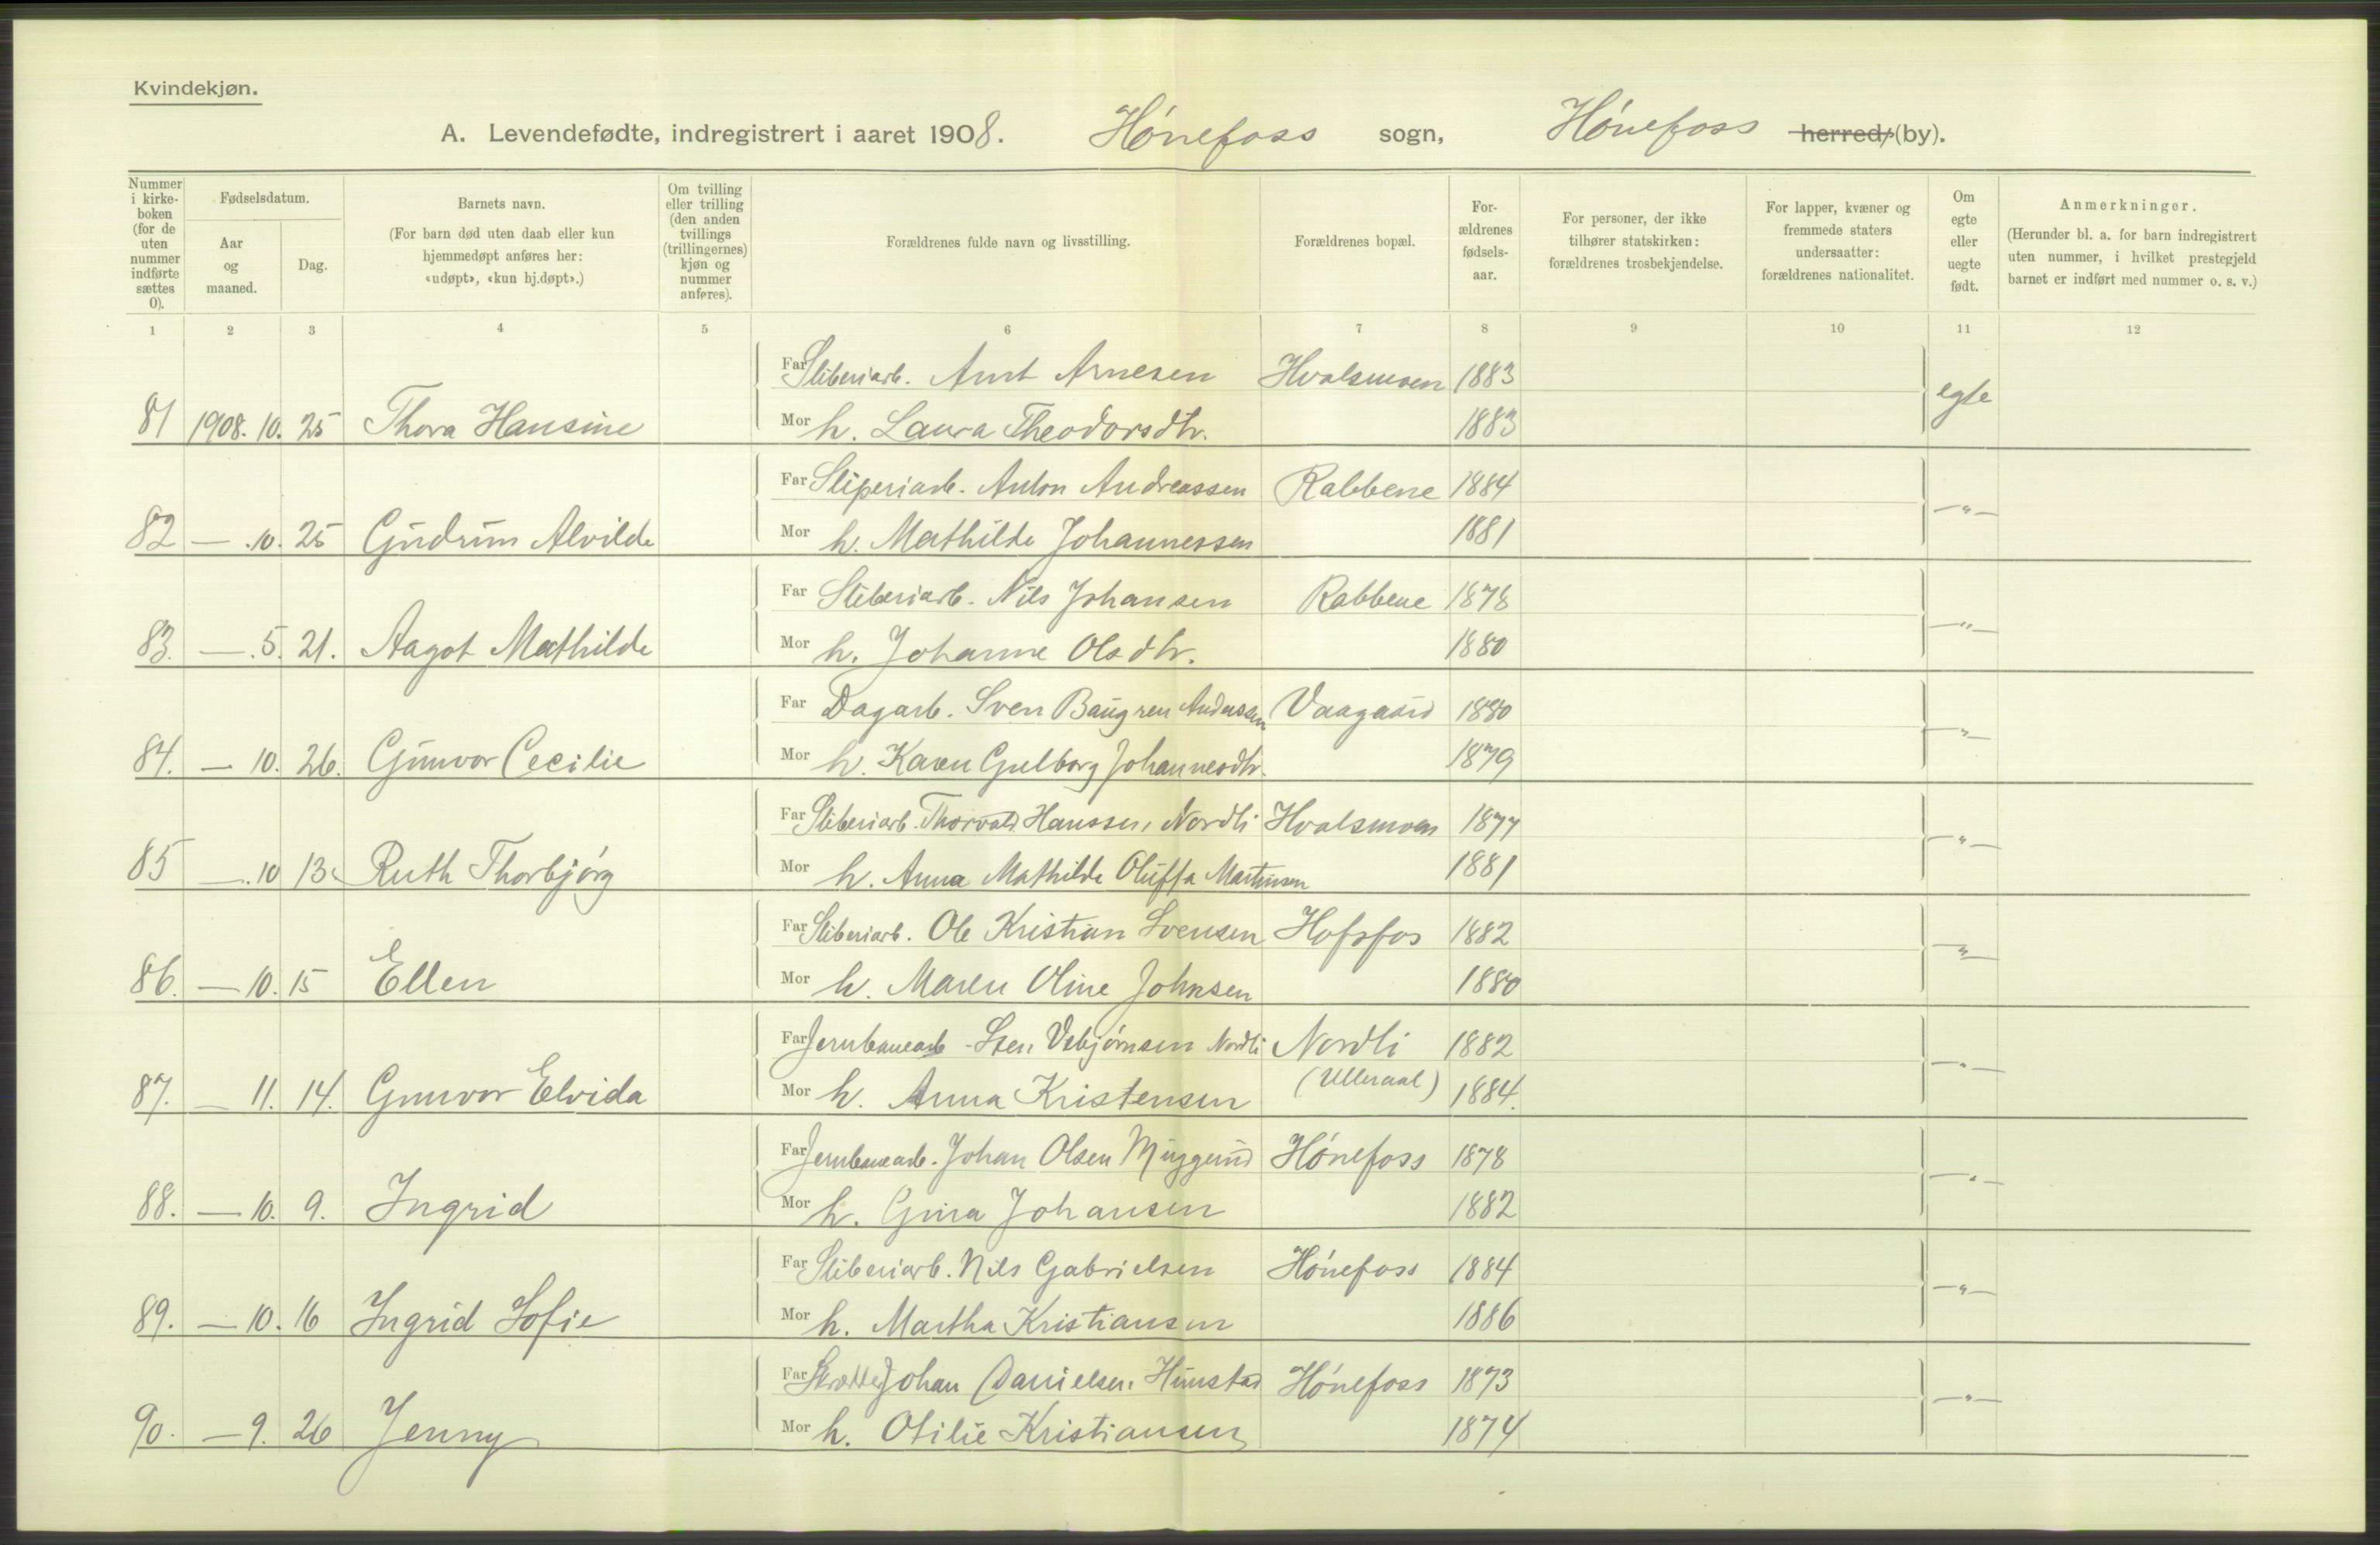 Kvindekjøn.
A. Levendefødte, indregistrert i aaret 1908. Hónefoss sogn, Hónefoss herred/(by).
Nummer i kirke-boken (for de uten nummer indførte sættes 0).
Fødselsdatum.
Aar og maaned.
Dag.
Barnets navn.
(For barn død uten daab eller kun hjemmedøpt anføres her: «udøpt», «kun hj.døpt».)
Om tvilling eller trilling (den anden tvillings (trillingernes) kjøn og nummer anføres).
Forældrenes fulde navn og livsstilling.
Forældrenes bopæl.
For-ældrenes fødsels-aar.
For personer, der ikke tilhører statskirken: forældrenes trosbekjendelse.
For lapper, kvæner og fremmede staters undersaatter: forældrenes nationalitet.
Om egte eller uegte født.
Anmerkninger.
(Herunder bl. a. for barn indregistrert uten nummer, i hvilket prestegjeld barnet er indført med nummer o. s. v.)
1 2 3 4 5 6 7 8 9 10 11 12
Far Sliberiarb. Arnt Arnesen Hvalsmoen 1883
81 1908. 10. 25 Thora Hansine Mor h. Laura Theodorsdtr. 1883 egte
Far Sliperiarb. Anton Andreassen Rabbene 1884
82 — . 10. 25 Gudrun Alvilde Mor h. Mathilde Johannessen 1881 — " —
Far Sliberiarb. Nils Johansen Rabbene 1878
83. — . 5. 21. Aagot Mathilde Mor h. Johanne Olsdtr. 1880 — " —
Far Dagarb. Sven Baugren Anderssen Vaagaard 1880
84. — 10. 26. Gunvor Cecilie Mor h. Karen Gulborg Johannesdtr. 1879 — " —
Far Sliberiarb. Thorvald Hanssen Nordli Hvalsmoen 1877
85 — . 10 13. Ruth Thorbjórg Mor h. Anna Mathilde Oluffa Martinsen 1881 — " —
Far Sliberiarb. Ole Kristian Svensen Hofsfos 1882
86. — 10. 15 Ellen Mor h. Maren Oline Johnsen 1880 — " —
Far Jernbanearb. Sten Vebjórnsen Nordli Nordli 1882
87. — 11. 14. Gunvor Elvida Mor h. Anna Kristensen (Ulleraal) 1884. — " —
Far Jernbanearb. Johan Olsen Muggerud Hónefoss 1878
88. — 10. 9. Ingrid Mor h. Gina Johansen 1882 — " —
Far Sliberiarb. Nils Gabrielsen Hónefoss 1884
89. — 10. 16 Ingrid Sofie Mor h. Martha Kristiansen 1886 — " —
Far Johan Danielsen Hunstad Hónefoss 1873
90. — 9. 26 Jenny Mor h. Otilie Kristiansen 1874 — " —